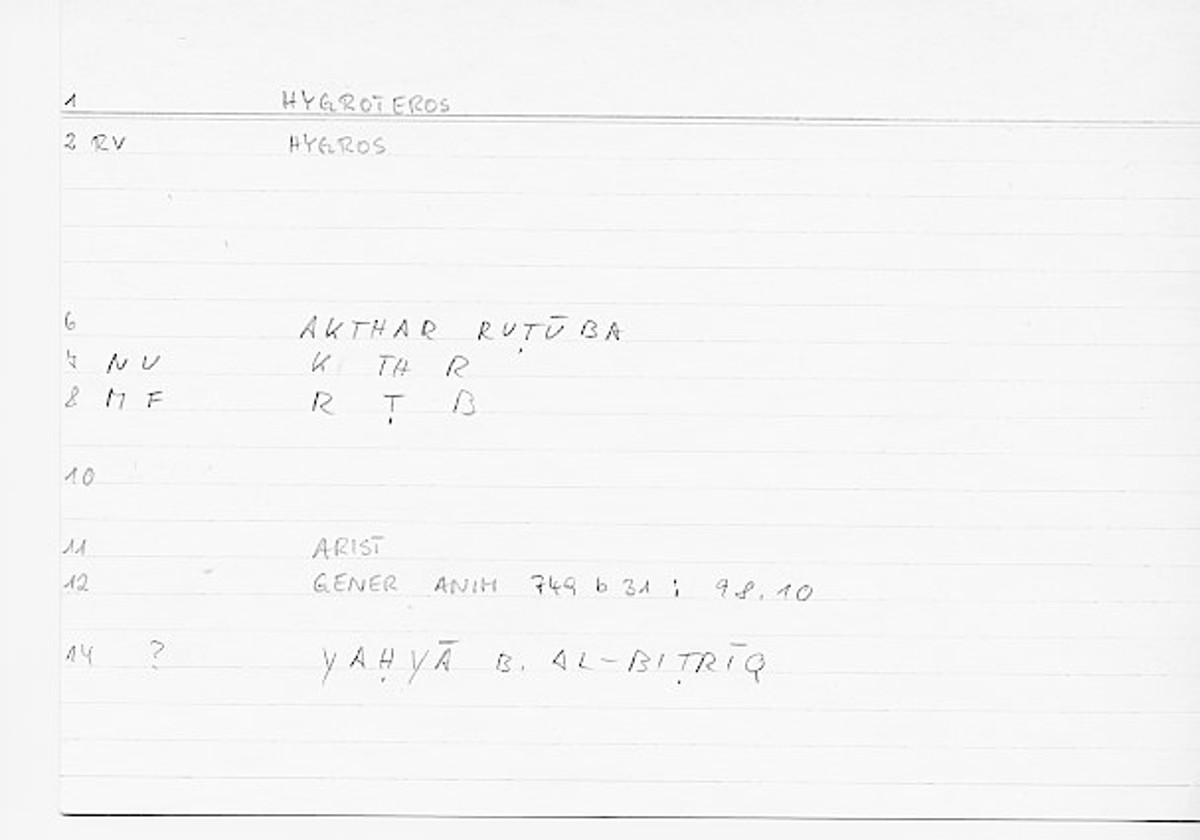 1 HYGROTEROS
2 RV HYGROS
6 AKTHAR RUṬŪBA
7 NV K TH R
8 MF R Ṭ B
10
11 ARIST
12 GENER ANIM 749 b 31 ; 98.10
14 ? YAḤYĀ B. AL-BIṬRĪQ